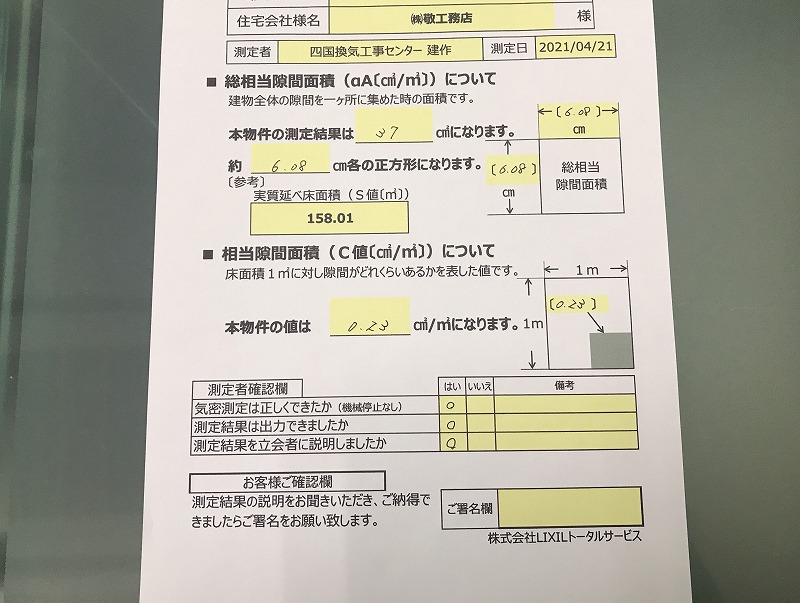 住宅会社様名 ㈱敬工務店 様
測定者 四国換気工事センター 建作 測定日 2021/04/21
■ 総相当隙間面積（αA〔㎠/㎡〕）について
建物全体の隙間を一ヶ所に集めた時の面積です。
本物件の測定結果は 37 ㎠になります。
約 6.08 ㎝各の正方形になります。
〔参考〕
実質延べ床面積（S値〔㎡〕）
158.01
〔6.08〕
㎝
〔6.08〕
㎝
総相当
隙間面積
■ 相当隙間面積（C値〔㎠/㎡〕）について
床面積1㎡に対し隙間がどれくらいあるかを表した値です。
本物件の値は 0.23 ㎠/㎡になります。
1m
1m
〔0.23〕
測定者確認欄 はい いいえ 備考
気密測定は正しくできたか（機械停止なし） ○
測定結果は出力できましたか ○
測定結果を立会者に説明しましたか ○
お客様ご確認欄
測定結果の説明をお聞きいただき、ご納得で
きましたらご署名をお願い致します。
ご署名欄
株式会社LIXILトータルサービス